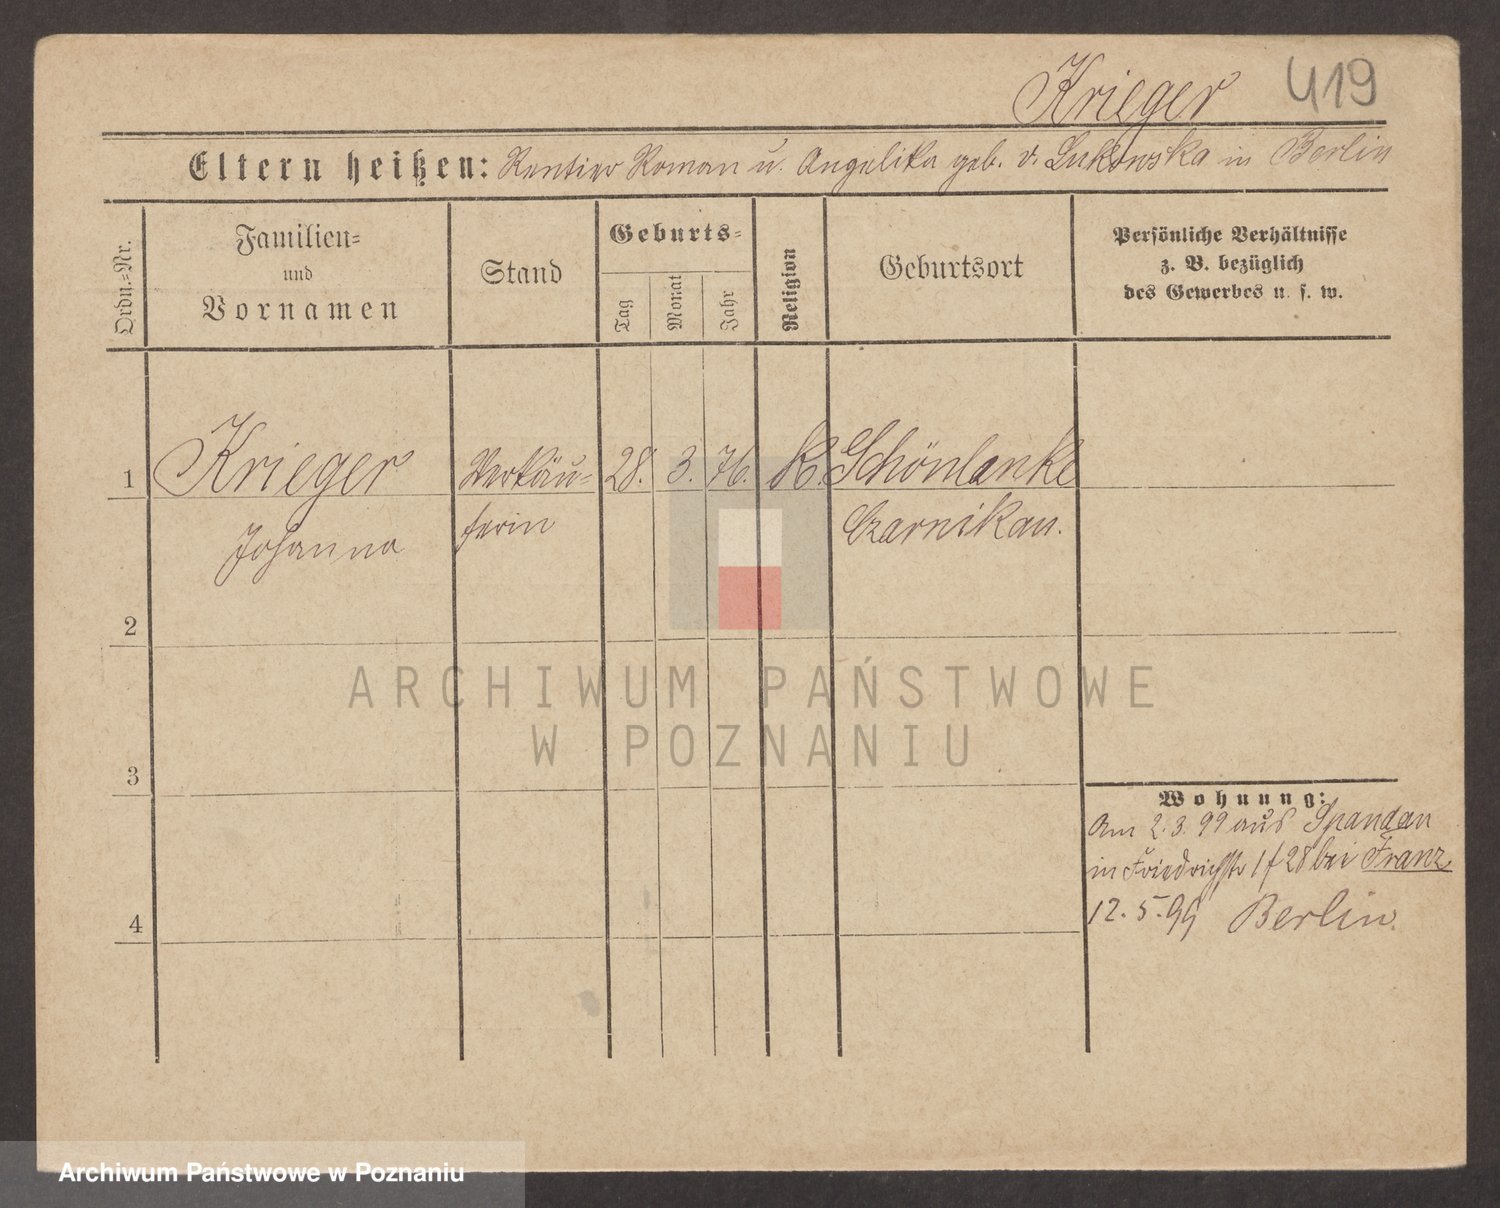 Krieger 419
Eltern heißen: Rentier Roman u. Angelika geb. v. Lukowska in Berlin
Ordn.=Nr.
Familien=
und
Vornamen
Stand
Geburts=
Tag
Monat
Jahr
Religion
Geburtsort
Persönliche Verhältnisse
z. B. bezüglich
des Gewerbes u. s. w.
1 Krieger Verkäu= 28. 3. 76. K. Schönlanke
Johanna ferin Czarnikau.
2
3
4
Wohnung:
Am 2.3.99 aus Spandau
in Friedrichstr 1 f 28 bei Franz
12.5.99 Berlin.
ARCHIWUM PAŃSTWOWE
W POZNANIU
Archiwum Państwowe w Poznaniu